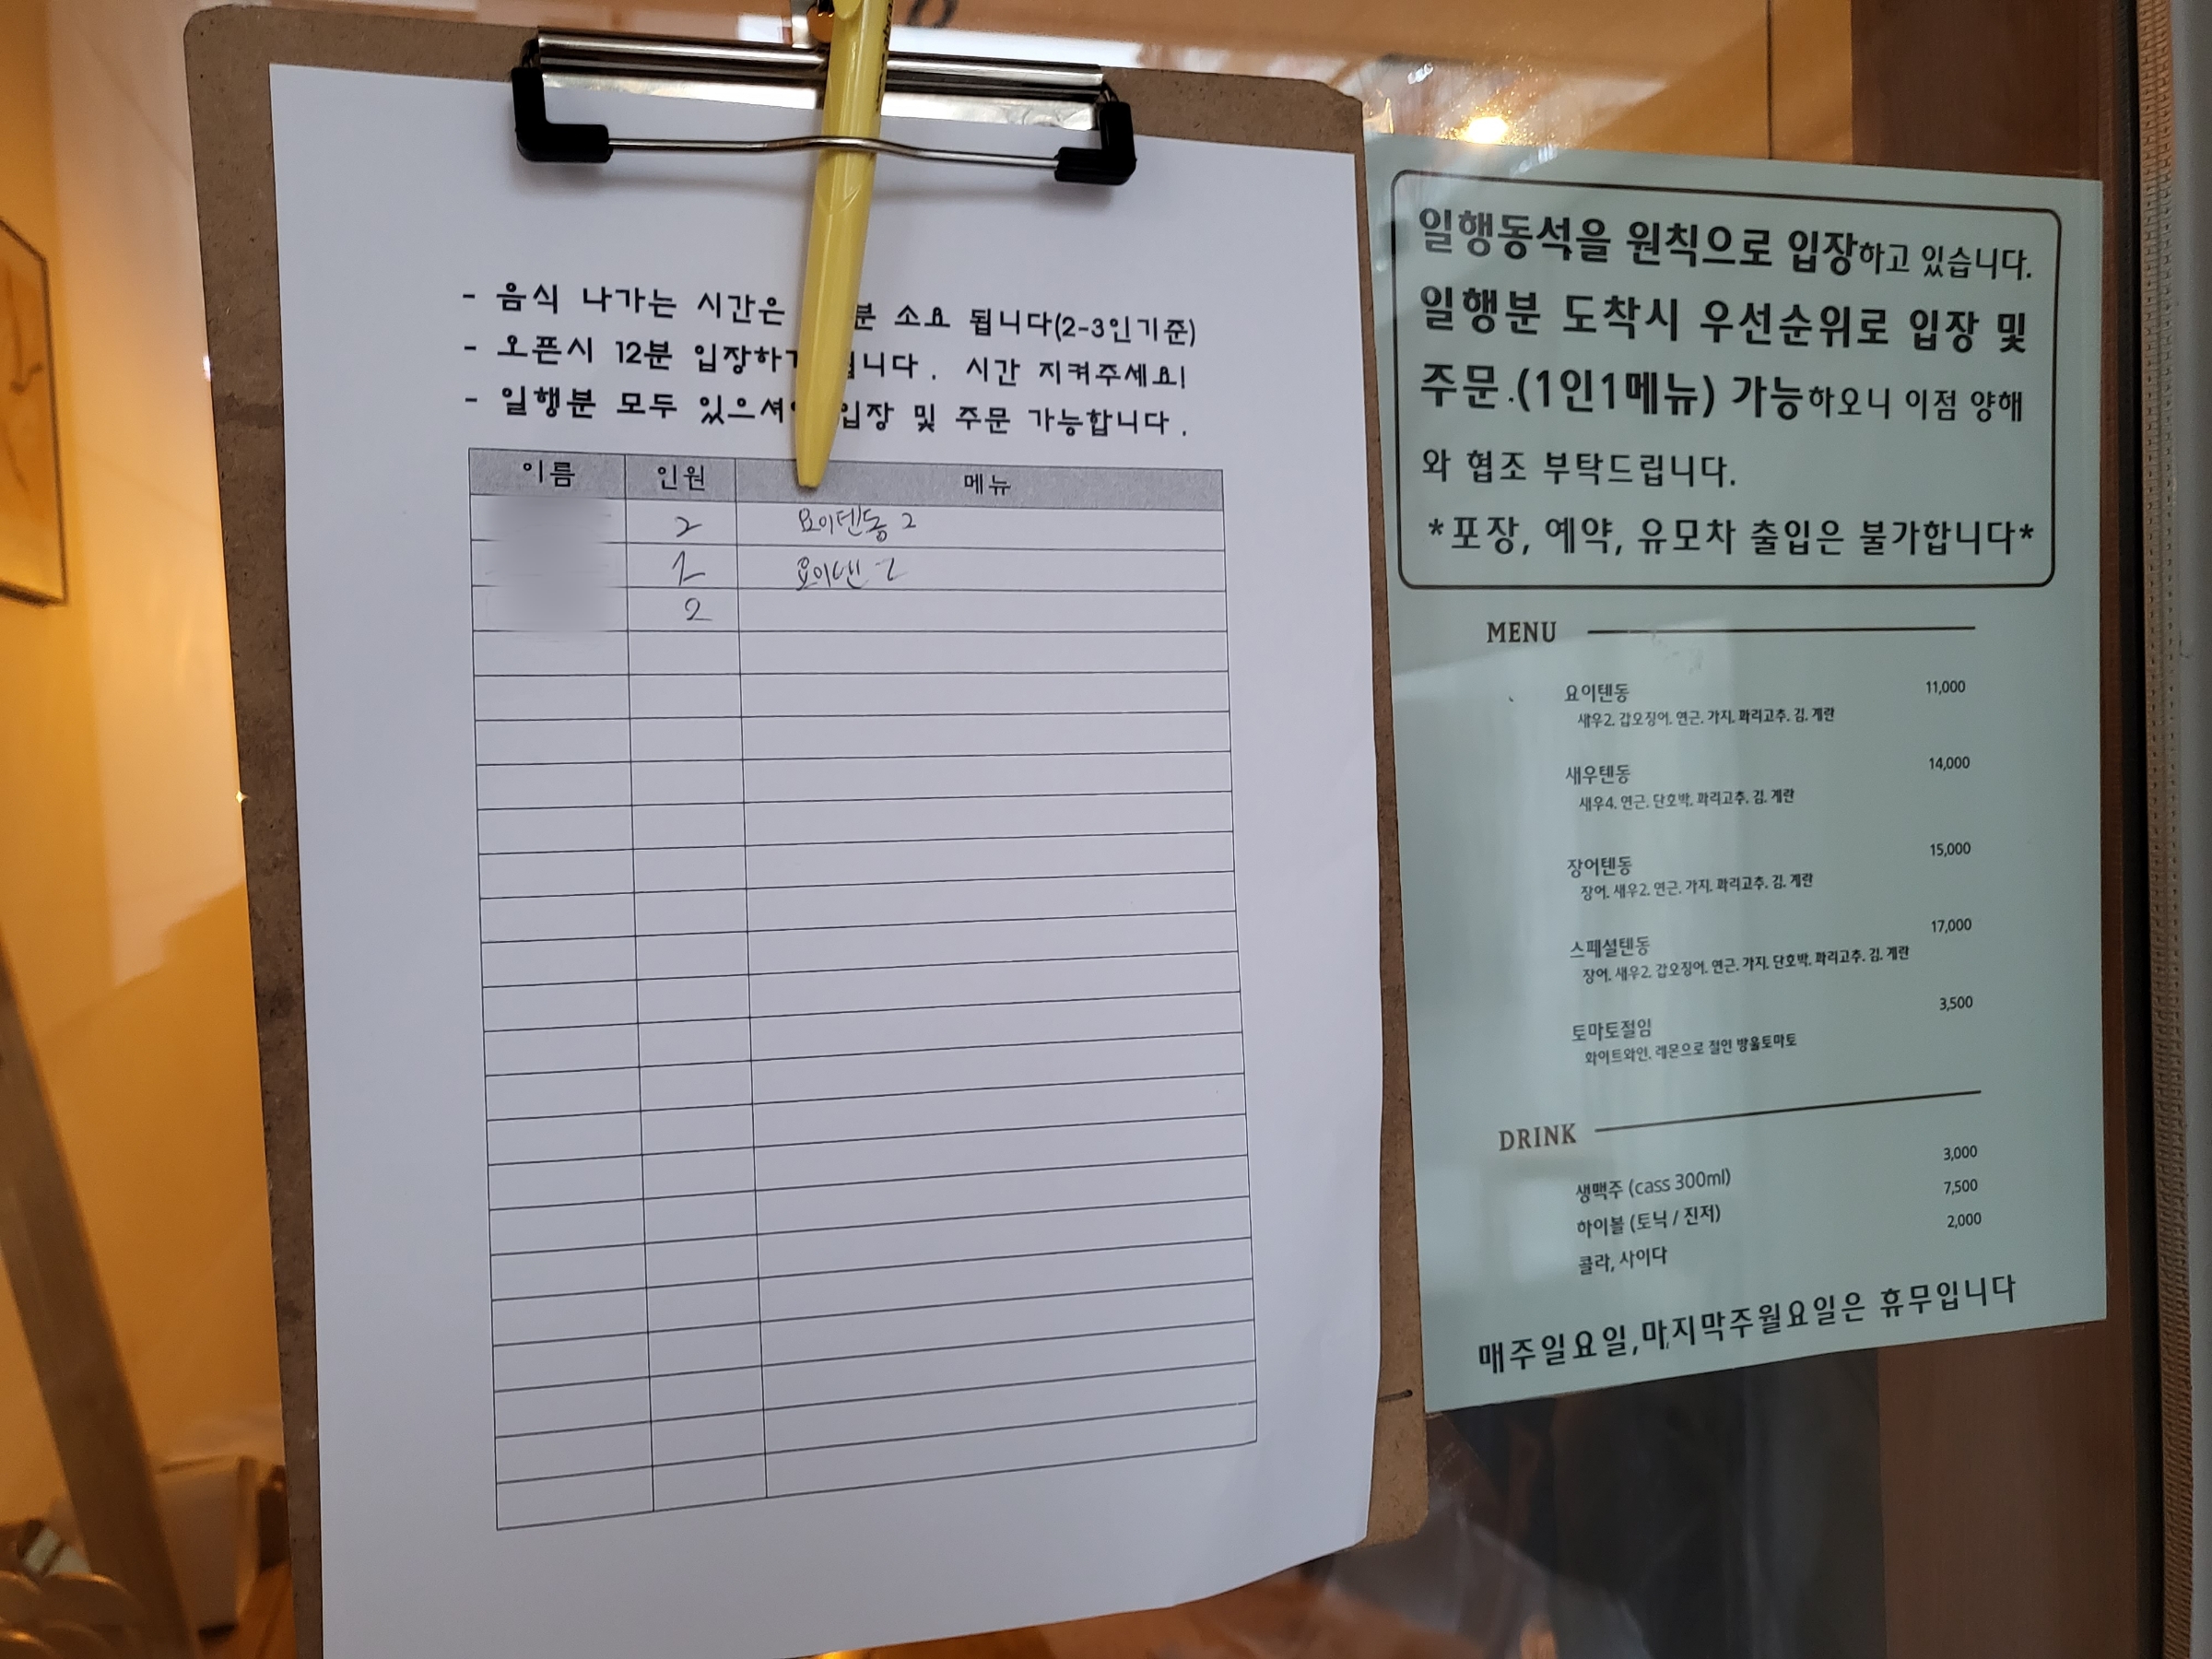 - 음식 나가는 시간은 분 소요 됩니다(2-3인기준)
- 오픈시 12분 입장하 니다. 시간 지켜주세요!
- 일행분 모두 있으셔 입장 및 주문 가능합니다.
이름 인원 메뉴
2 요이텐동 2
1
2
일행동석을 원칙으로 입장하고 있습니다.
일행분 도착시 우선순위로 입장 및
주문.(1인1메뉴) 가능하오니 이점 양해
와 협조 부탁드립니다.
*포장, 예약, 유모차 출입은 불가합니다*
MENU
요이텐동 11,000
새우2. 갑오징어. 연근. 가지. 꽈리고추. 김. 계란
새우텐동 14,000
새우4. 연근. 단호박. 꽈리고추. 김. 계란
장어텐동 15,000
장어. 새우2. 연근. 가지. 꽈리고추. 김. 계란
스페셜텐동 17,000
장어. 새우2. 갑오징어. 연근. 가지. 단호박. 꽈리고추. 김. 계란
토마토절임 3,500
화이트와인. 레몬으로 절인 방울토마토
DRINK
생맥주 (cass 300ml) 3,000
하이볼 (토닉 / 진저) 7,500
콜라, 사이다 2,000
매주일요일,마지막주월요일은 휴무입니다